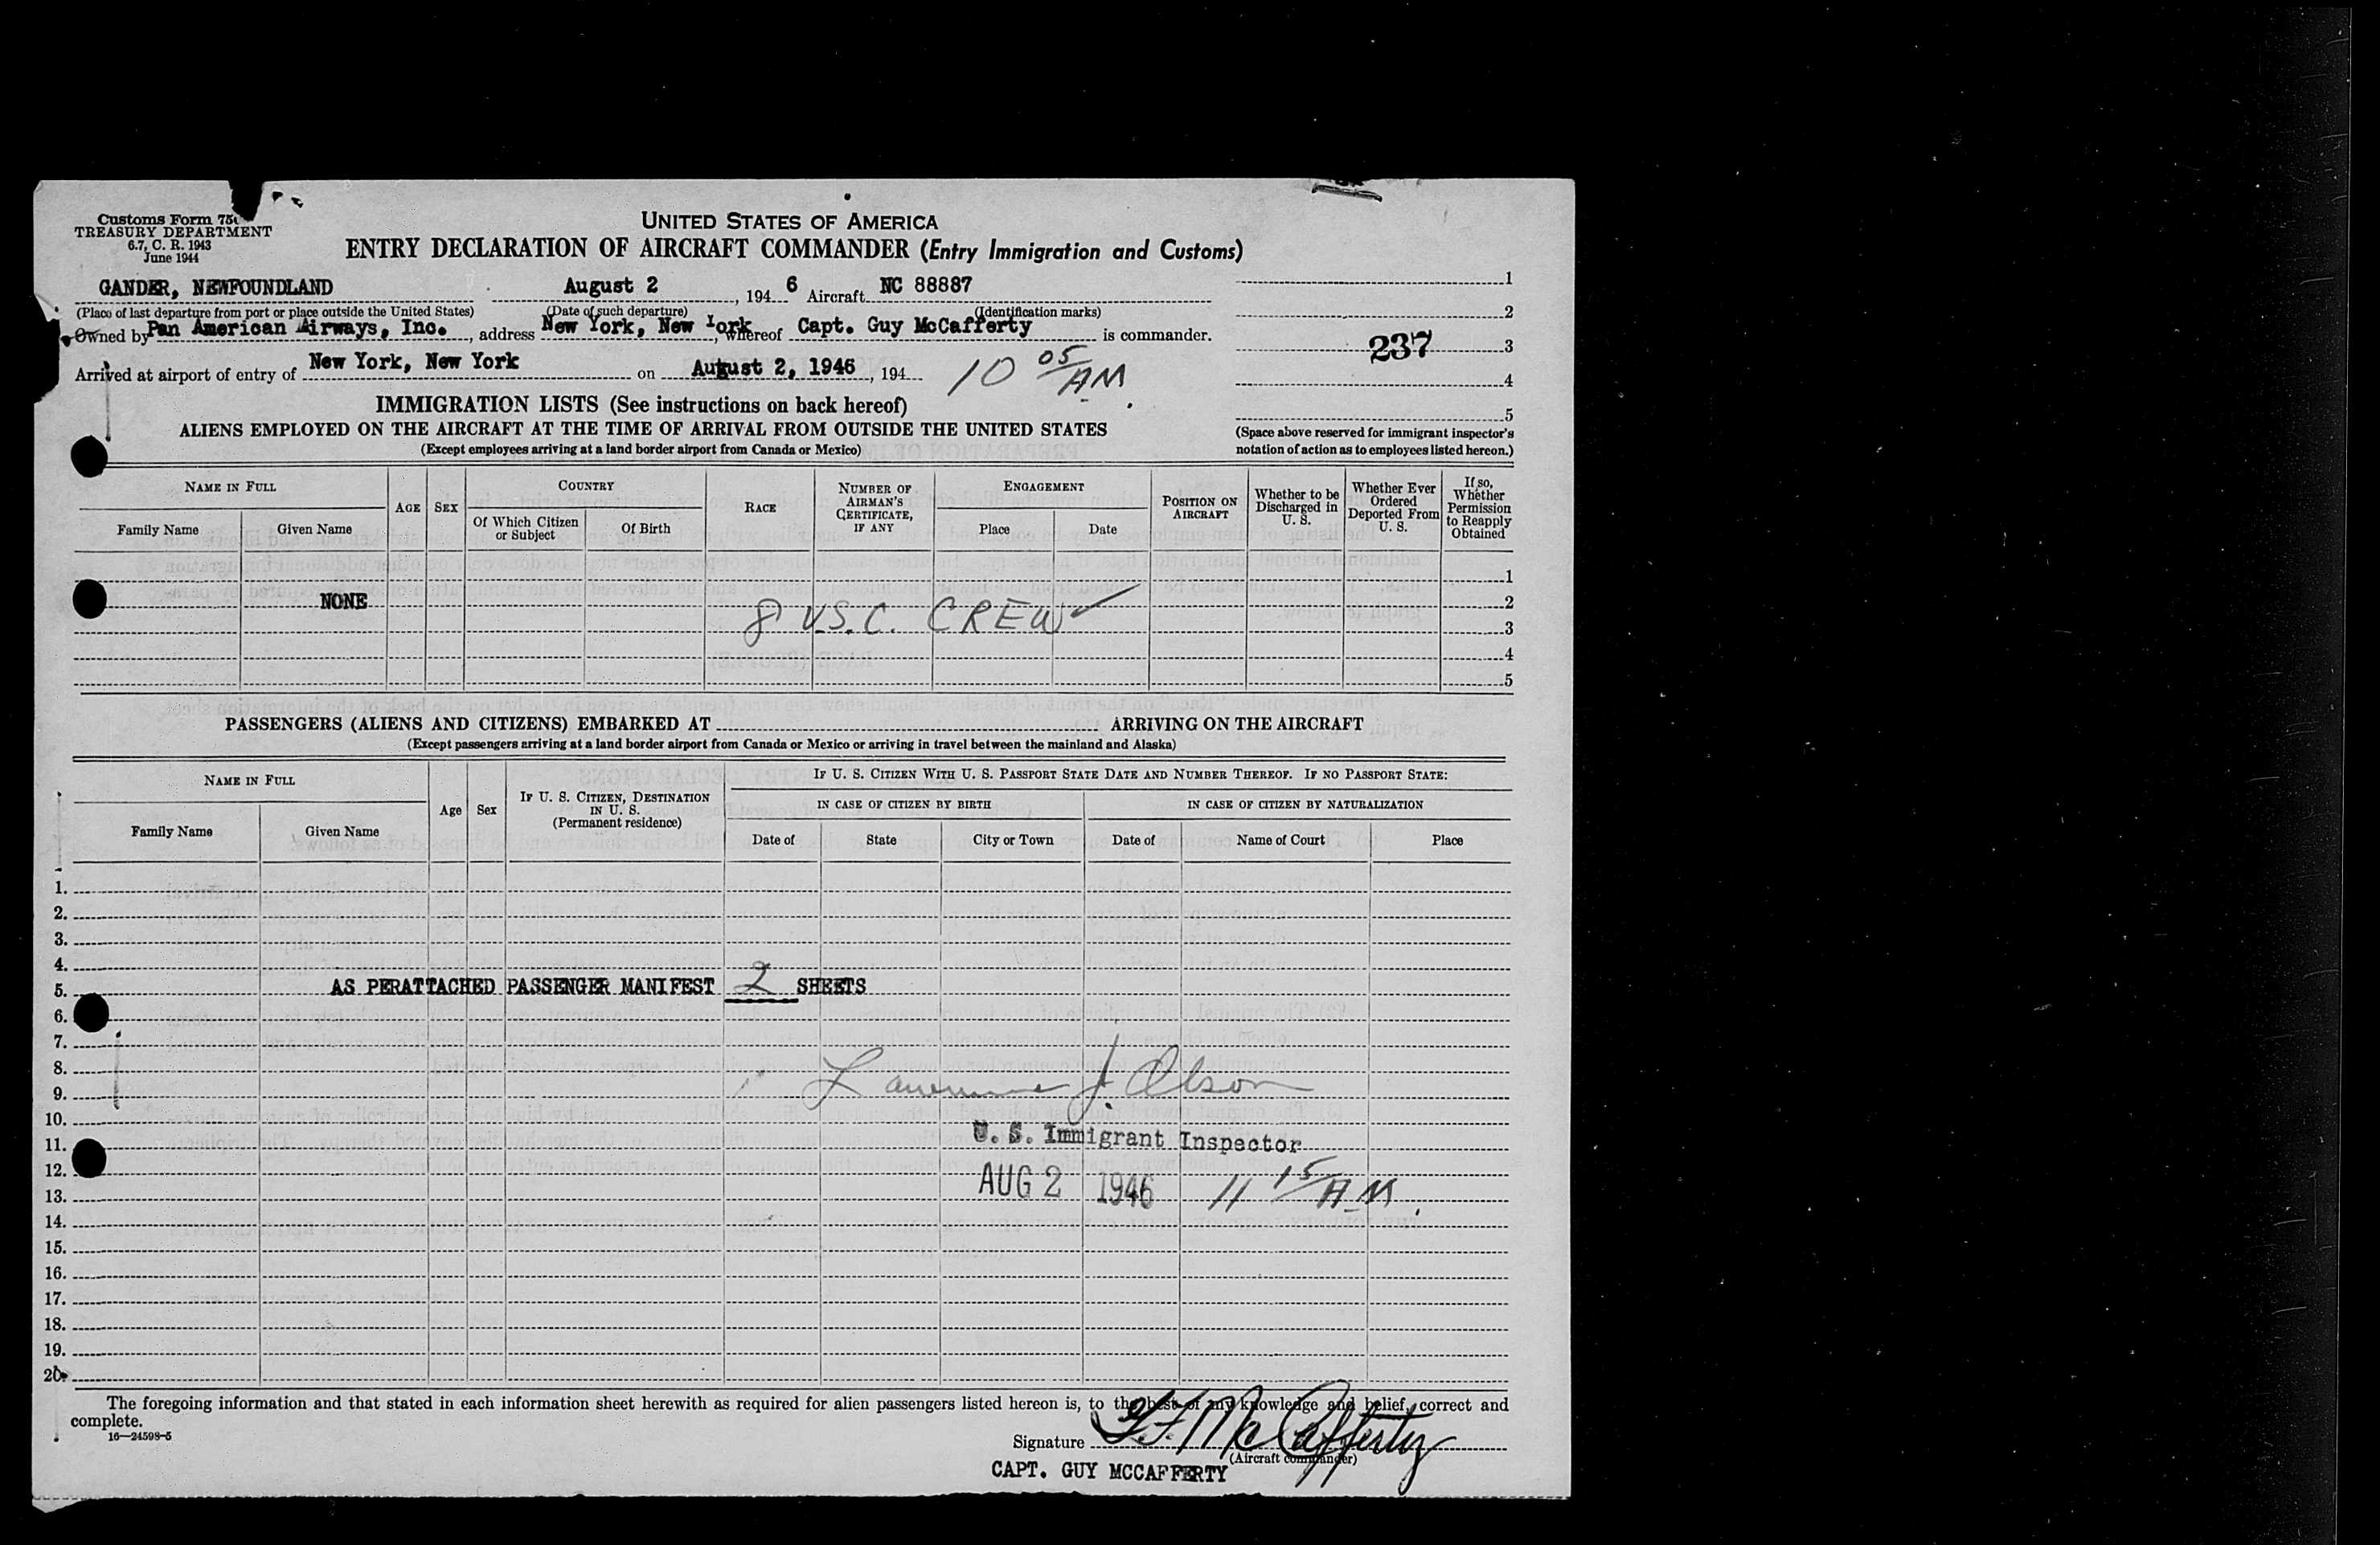 Customs Form 75
TREASURY DEPARTMENT
6.7, C. R. 1943
June 1944
UNITED STATES OF AMERICA
ENTRY DECLARATION OF AIRCRAFT COMMANDER (Entry Immigration and Customs)
GANDER, NEWFOUNDLAND August 2, 194 6 Aircraft NC 88887
(Place of last departure from port or place outside the United States) (Date of such departure) (Identification marks)
Owned by Pan American Airways, Inc., address New York, New York, whereof Capt. Guy McCafferty is commander.
Arrived at airport of entry of New York, New York on August 2, 1946, 194 10 05 AM
1
2
237 3
4
5
(Space above reserved for immigrant inspector's
notation of action as to employees listed hereon.)
IMMIGRATION LISTS (See instructions on back hereof)
ALIENS EMPLOYED ON THE AIRCRAFT AT THE TIME OF ARRIVAL FROM OUTSIDE THE UNITED STATES
(Except employees arriving at a land border airport from Canada or Mexico)
NAME IN FULL
Family Name Given Name
AGE
SEX
COUNTRY
Of Which Citizen or Subject Of Birth
RACE
NUMBER OF AIRMAN'S CERTIFICATE, IF ANY
ENGAGEMENT
Place Date
POSITION ON AIRCRAFT
Whether to be Discharged in U. S.
Whether Ever Ordered Deported From U. S.
If so, Whether Permission to Reapply Obtained
1
NONE 2
8 U.S.C. CREW 3
4
5
PASSENGERS (ALIENS AND CITIZENS) EMBARKED AT ARRIVING ON THE AIRCRAFT
(Except passengers arriving at a land border airport from Canada or Mexico or arriving in travel between the mainland and Alaska)
NAME IN FULL
Family Name Given Name
Age
Sex
IF U. S. CITIZEN, DESTINATION IN U. S. (Permanent residence)
IF U. S. CITIZEN WITH U. S. PASSPORT STATE DATE AND NUMBER THEREOF. IF NO PASSPORT STATE:
IN CASE OF CITIZEN BY BIRTH IN CASE OF CITIZEN BY NATURALIZATION
Date of State City or Town Date of Name of Court Place
1.
2.
3.
4.
5. AS PERATTACHED PASSENGER MANIFEST 2 SHEETS
6.
7.
8.
9. Lawrence J. Olson
10.
11. U. S. Immigrant Inspector
12.
13. AUG 2 1946 11 15 AM.
14.
15.
16.
17.
18.
19.
20.
The foregoing information and that stated in each information sheet herewith as required for alien passengers listed hereon is, to the best of my knowledge and belief, correct and
complete.
16—24598-5
Signature G F McCafferty
(Aircraft commander)
CAPT. GUY MCCAFFERTY